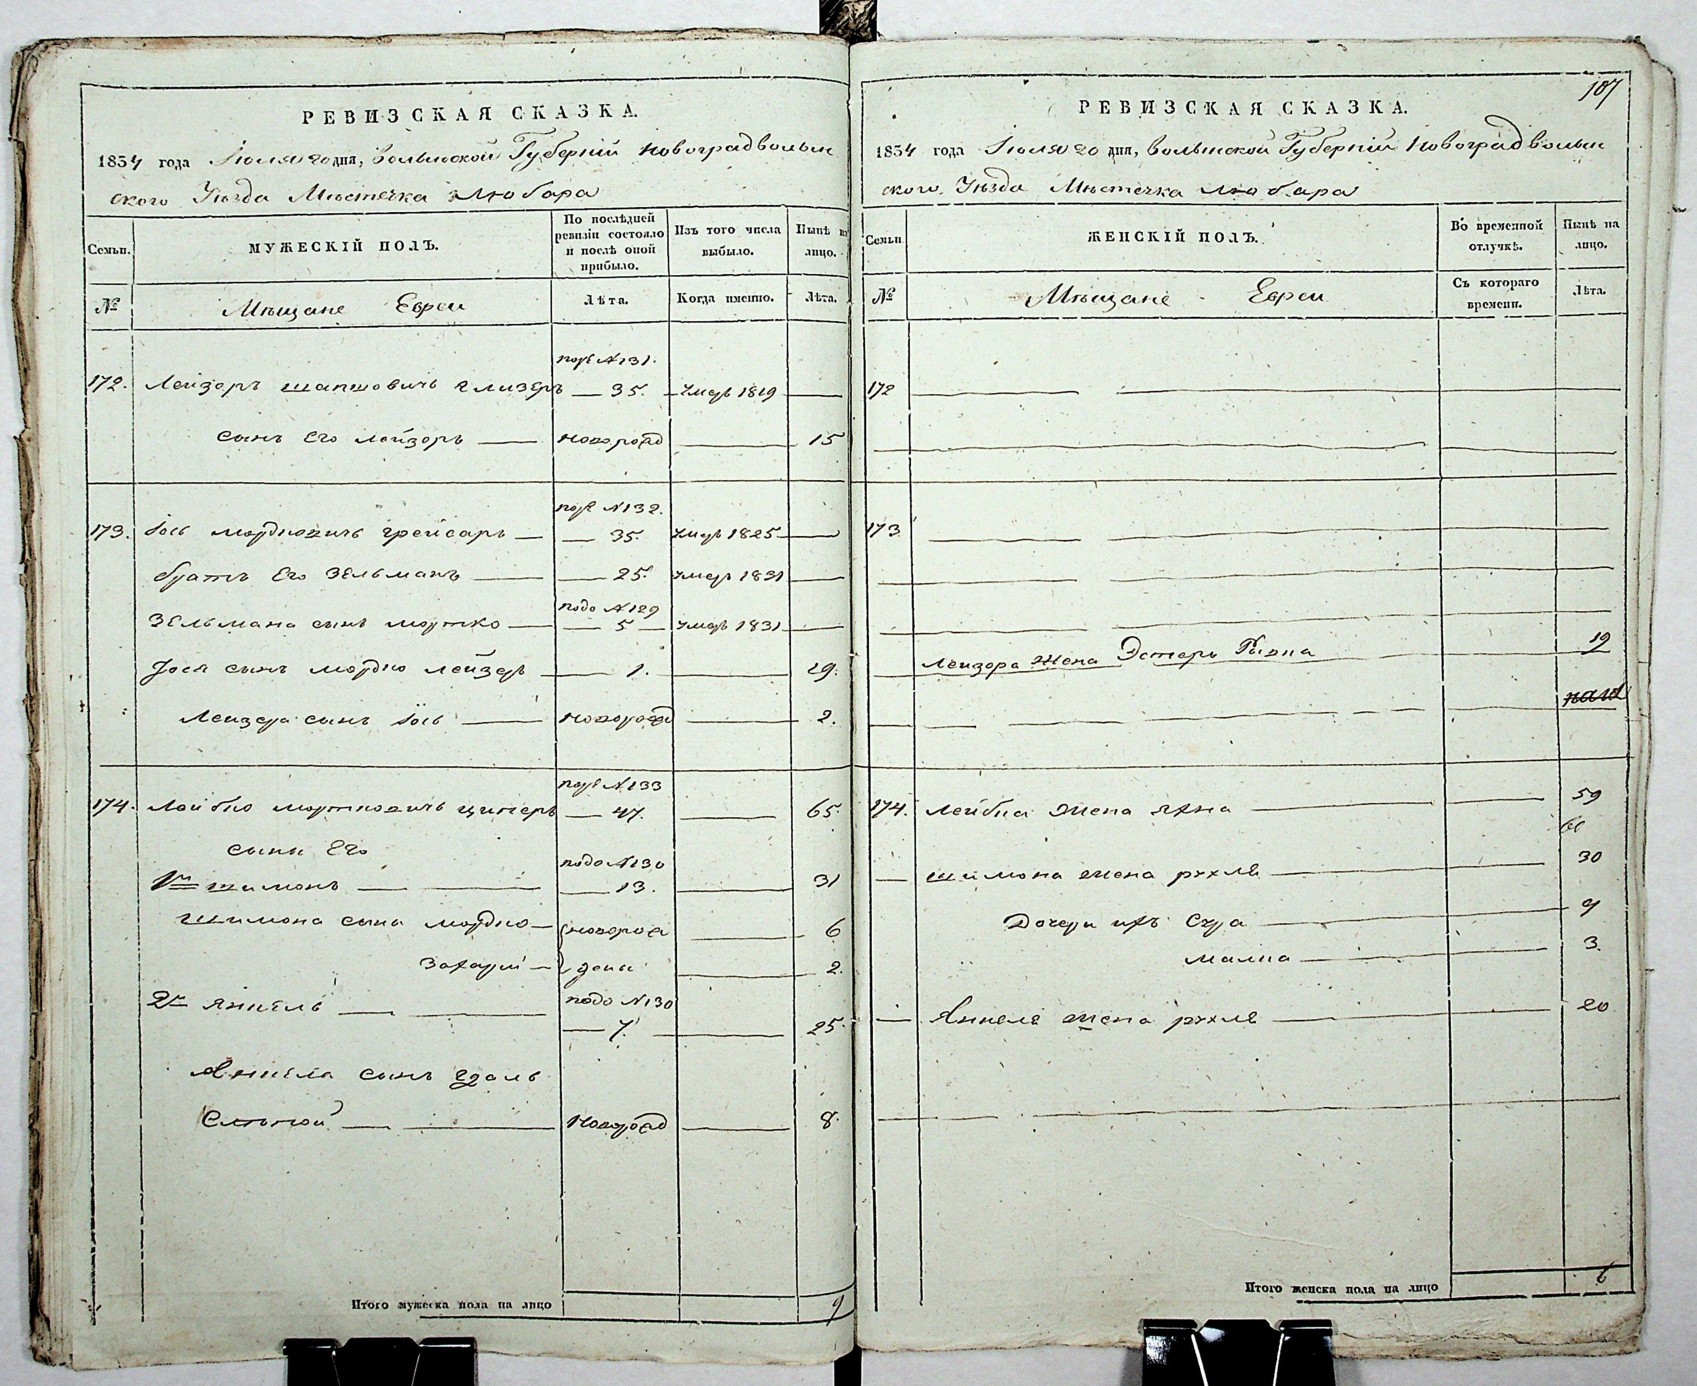 РЕВИЗСКАЯ СКАЗКА.
1834 года Іюля 20 дня, Волынской Губерніи Новоградволын
ского Уѣзда Мѣстечка Любара
Семьи.
МУЖЕСКІЙ ПОЛЪ.
По послѣдней ревизіи состояло и послѣ оной прибыло.
Изъ того числа выбыло.
Нынѣ на лицо.
№
Мѣщане Евреи
Лѣта.
Когда именно.
Лѣта.
№131.
172. Лейзоръ Шапшовичъ Глизеръ 35. умеръ 1819
сынъ Его Лейзоръ новорож 15
№132.
173. Іось Мордковичъ 35. умеръ 1825
братъ Его Зельманъ 25. умеръ 1831
подъ №129
Зельмана сынъ Мортко 5 умеръ 1831
Іося сынъ Мордко Лейзеръ 1. 19.
Лейзера сынъ Іось новорож 2.
№133
174. Лейбко Мортковичъ Циперъ 47. 65.
сыны Его
подъ №130
1й Шимонъ 13. 31
Шимона сыны Мордко новорож 6
дены 2.
2й Янкель подъ №130
7. 25.
Янкеля сынъ
новорож 8.
Итого мужеска пола на лицо 9
107
РЕВИЗСКАЯ СКАЗКА.
1834 года Іюля 20 дня, Волынской Губерніи Новоградволын
ского Уѣзда Мѣстечка Любара
Семьи.
ЖЕНСКІЙ ПОЛЪ.
Во временной отлучкѣ.
Нынѣ на лицо.
№
Мѣщане Евреи
Съ котораго времени.
Лѣта.
172
173
Лейзора жена Эстеръ 19
174. Лейбка жена Хана 59
Шимона жена Рухля 30
Дочери ихъ Сура 9
Малка 3.
Янкеля жена Рухля 20
Итого женска пола на лицо 6